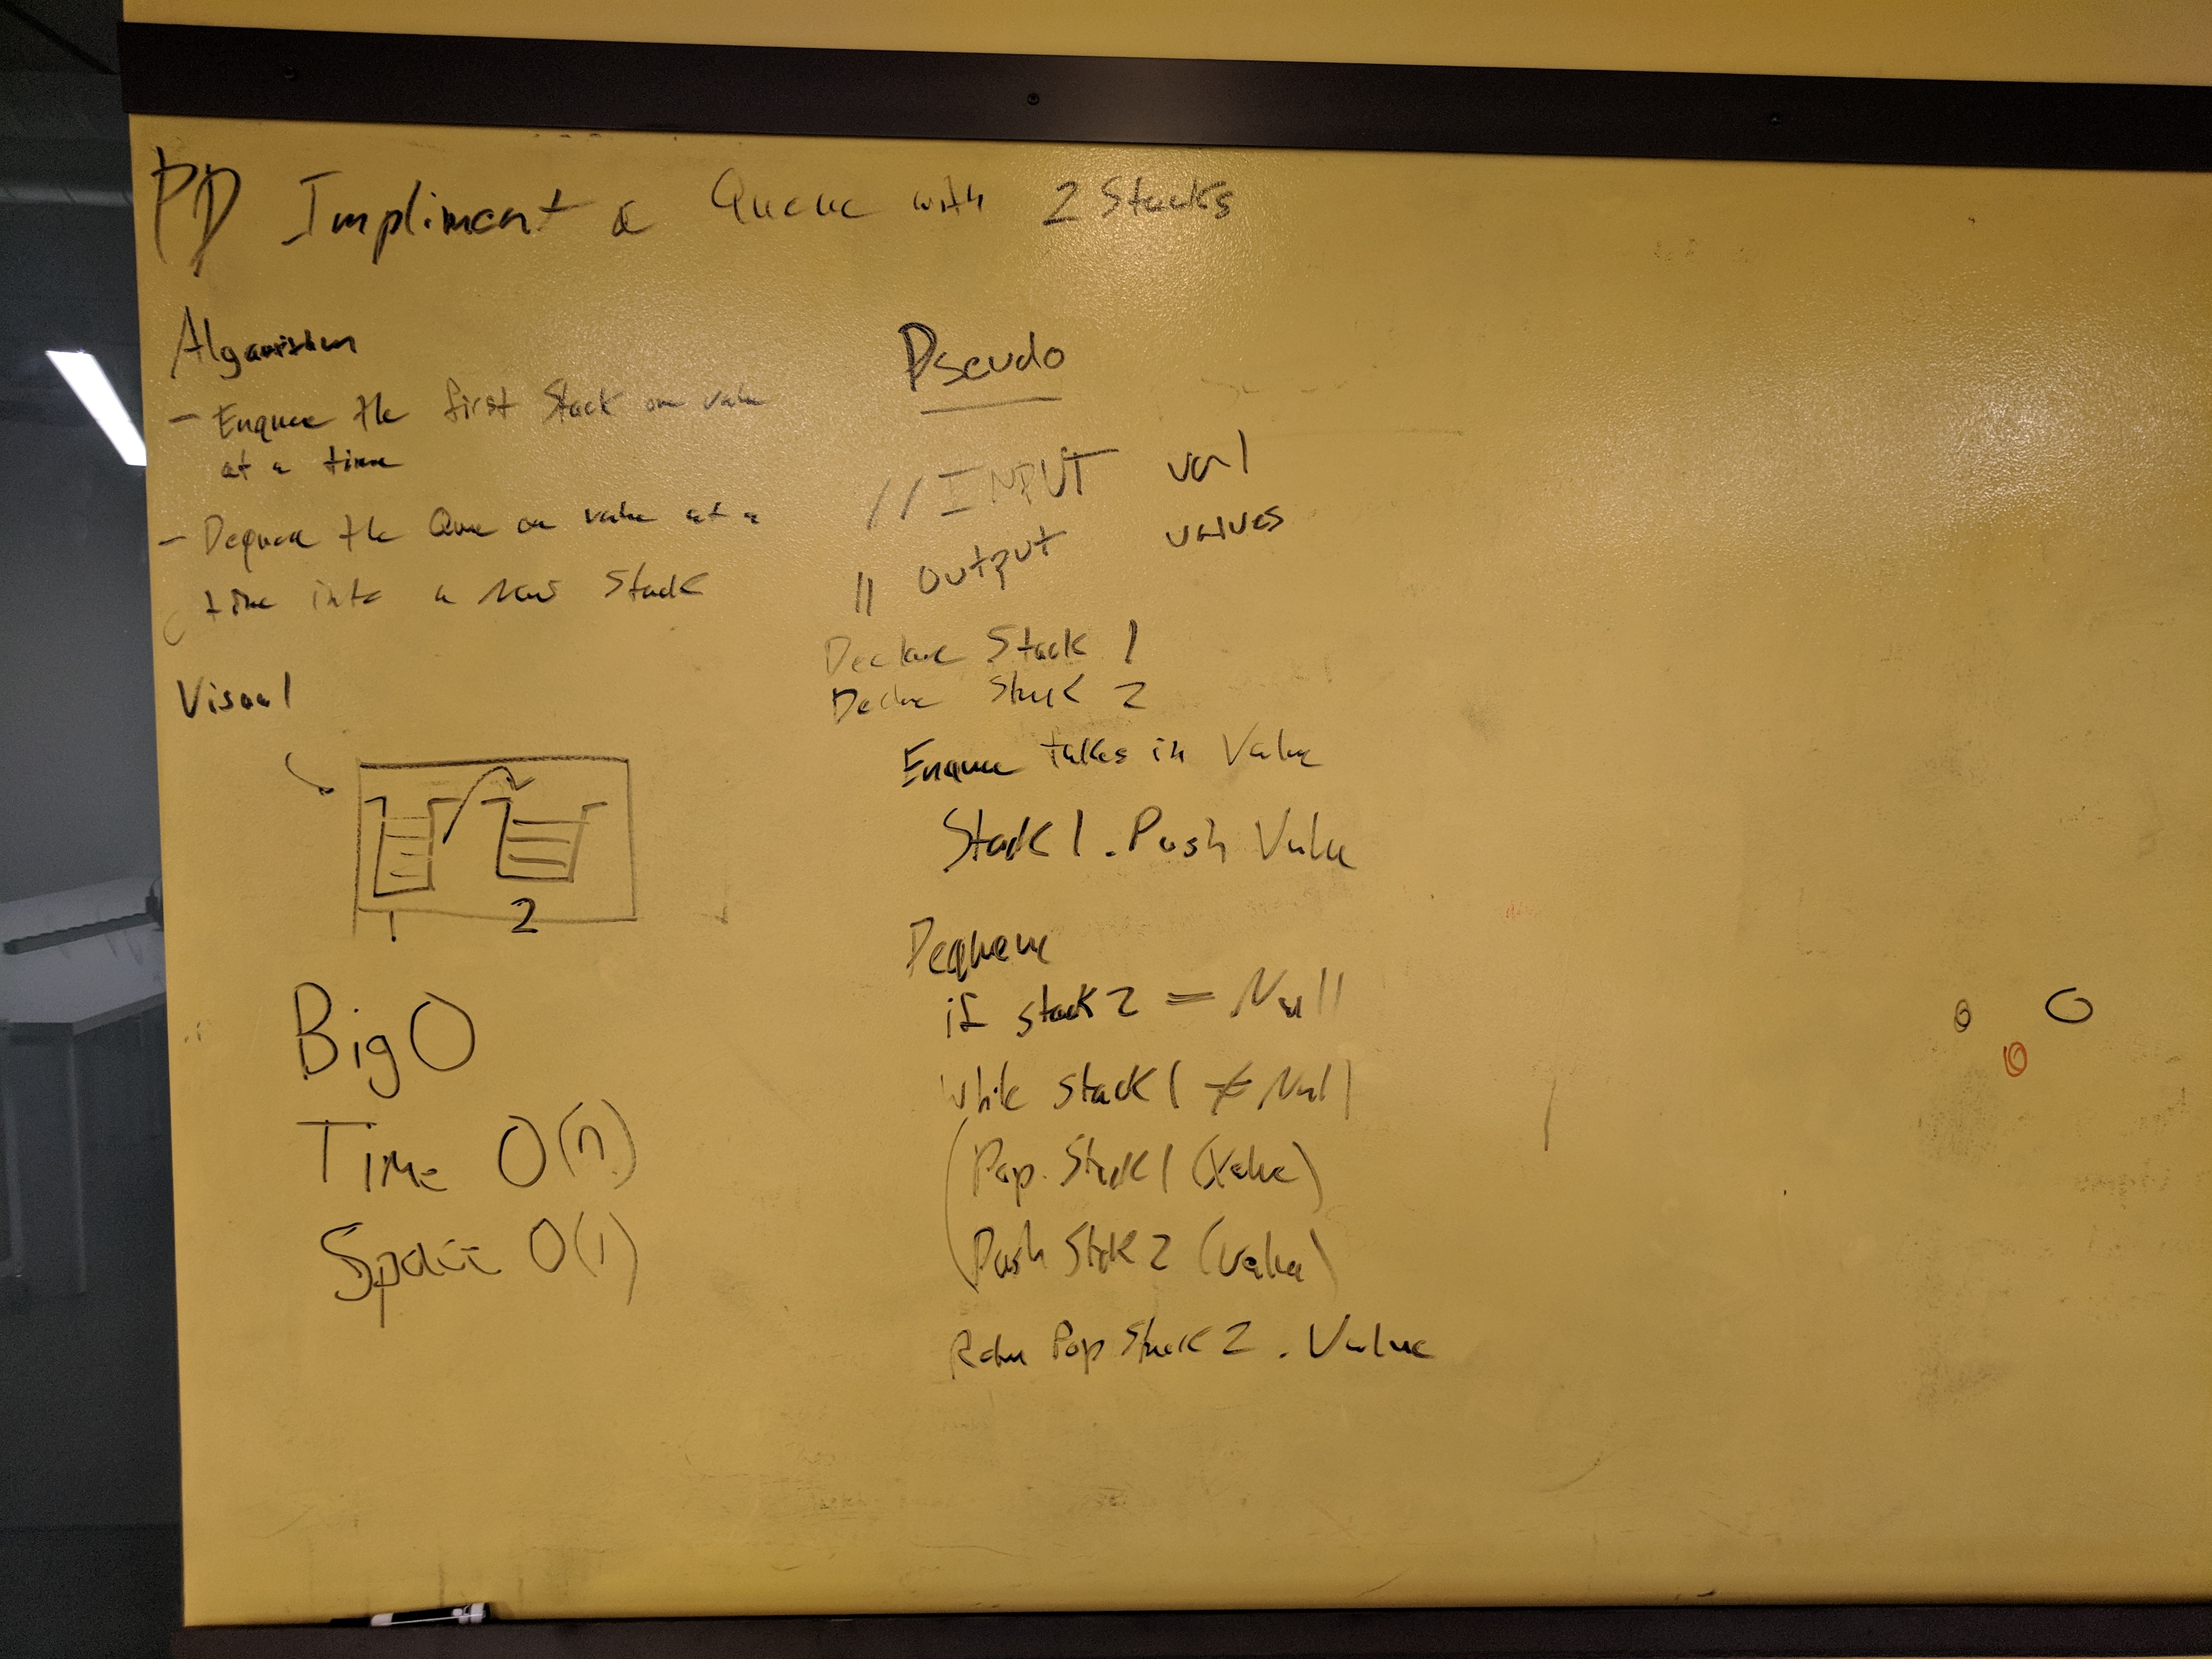 PD Impliment a Queue with 2 Stacks
Algorithm
- Enqueue the first Stack on value
at a time
- Dequeue the Que on value at a
time into a new Stack
Visual
1 2
Big O
Time O(n)
Space O(1)
Pseudo
// INPUT val
// Output values
Declare Stack 1
Declare Stack 2
Enqueue takes in Value
Stack 1 . Push Value
Dequeue
if stack 2 = Null
While stack 1 ≠ Null
(Pop. Stack 1 (Value)
(Push Stack 2 (value)
Return Pop Stack 2 . Value